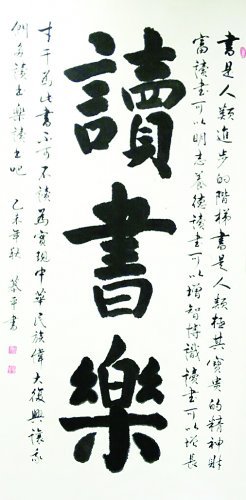 讀書樂
書是人類進步的階梯書是人類極其寶貴的精神財
富讀書可以明志養德讀書可以增智博識讀書可以增長
才干為此書不可不讀為實現中華民族偉大復興讓我
們多讀书樂讀书吧 乙未年秋 平書